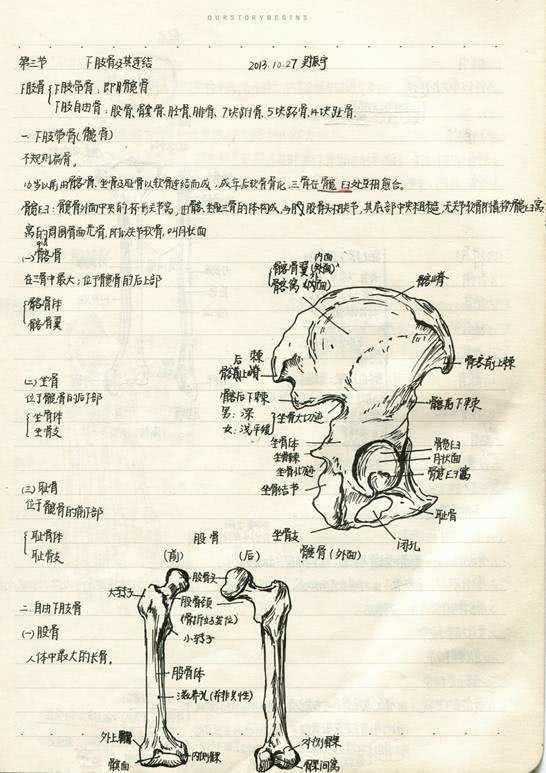 OURSTORYBEGINS
第三节 下肢骨及其连结 2013.10.27
下肢骨
下肢带骨：即髋骨
下肢自由骨：股骨,髌骨,胫骨,腓骨,7块跗骨,5块跖骨,14块趾骨.
一.下肢带骨(髋骨)
不规则扁骨.
16岁以前由髂骨、坐骨及耻骨以软骨连结而成.成年后软骨骨化,三骨在髋臼处互相愈合.
髋臼：髋骨外面中央的环形关节窝,由髂、坐、耻三骨的体构成,与股骨头相关节,其底部中央粗糙,无关节软骨附着称髋臼窝,
窝的周围骨面光滑,附以关节软骨,叫月状面
(一)髂骨
在三骨中最大；位于髋骨的后上部
髂骨体
髂骨翼
(二)坐骨
位于髋骨的后下部
坐骨体
坐骨支
(三)耻骨
位于髋骨的前下部
耻骨体
耻骨支
内面
髂骨翼(外面)
髂窝(内面)
髂嵴
髂前上棘
髂后下棘
男：深
女：浅平缓
坐骨大切迹
坐骨体
坐骨棘
坐骨小切迹
坐骨结节
坐骨支
髋臼
月状面
髋臼窝
耻骨
闭孔
髋骨(外面)
股骨
(前)
(后)
股骨头
大转子
股骨颈
(骨折好发位)
小转子
股骨体
滋养孔
外上髁
髌面
内侧髁
外侧髁
髁间窝
二.自由下肢骨
(一)股骨
人体中最大的长骨.